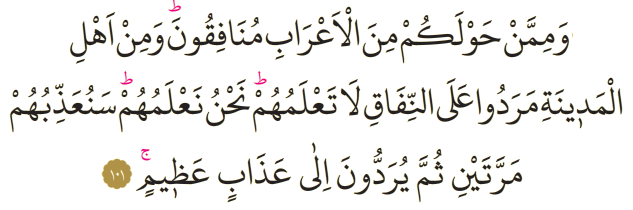 وَمِمَّنْ حَوْلَكُمْ مِنَ الْاَعْرَابِ مُنَافِقُونَۜ وَمِنْ اَهْلِ
الْمَد۪ينَةِ مَرَدُوا عَلَى النِّفَاقِ لَا تَعْلَمُهُمْۜ نَحْنُ نَعْلَمُهُمْۜ سَنُعَذِّبُهُمْ
مَرَّتَيْنِ ثُمَّ يُرَدُّونَ اِلٰى عَذَابٍ عَظ۪يمٍۚ ﴿١٠١﴾